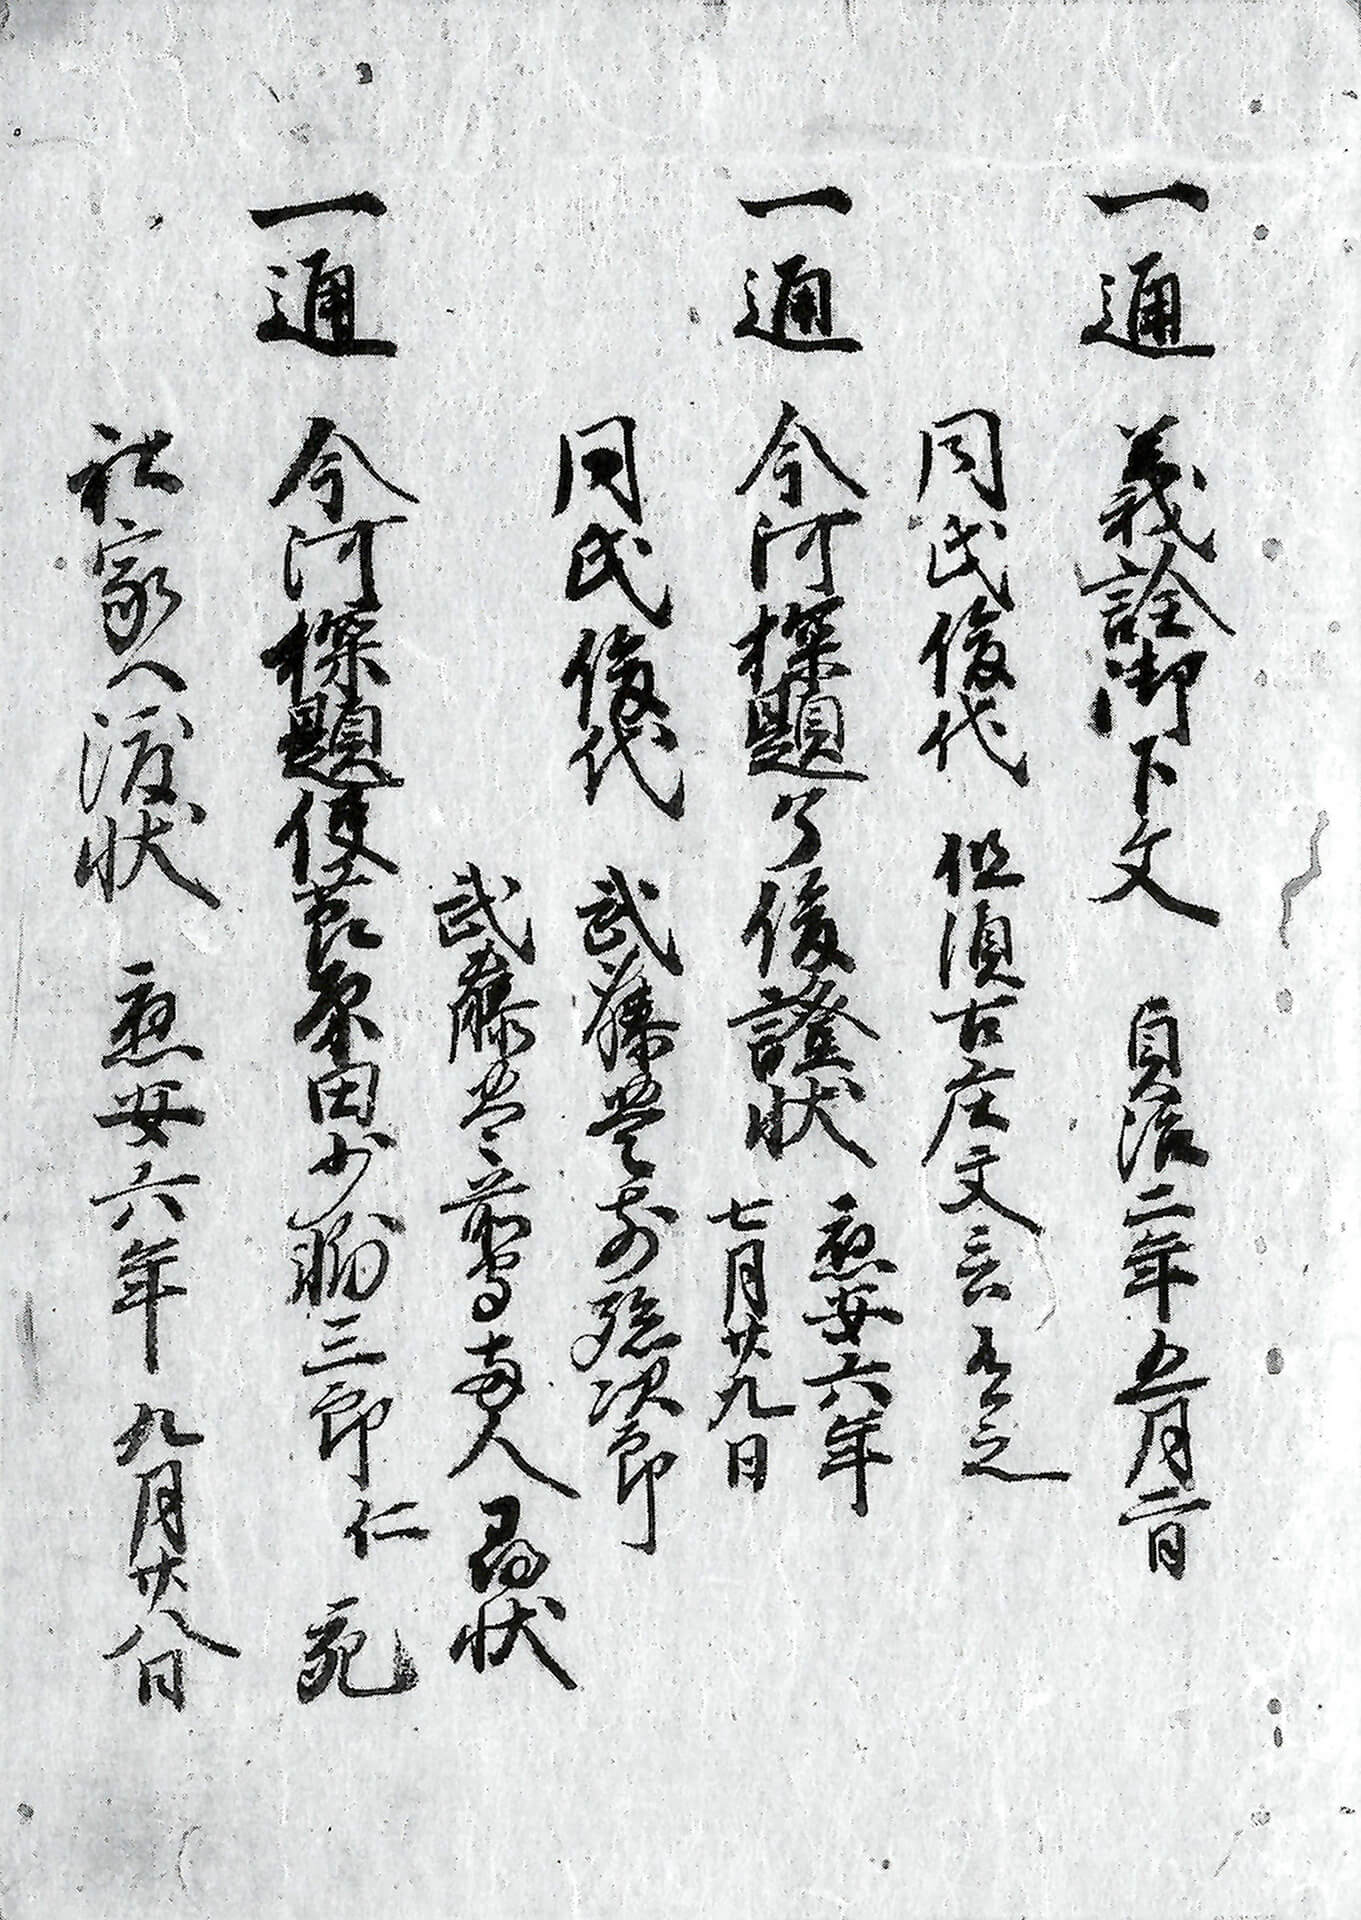 一通 義詮御下文 貞治二年五月二日
同氏俊代 但須古庄文言有之
一通 今河探題了俊證状 應安六年
七月廿九日
同氏俊代 武藤 次郎
武藤 両人 状
一通 今河探題使 原田 三郎仁宛
社家へ渡状 應安六年 九月廿八日